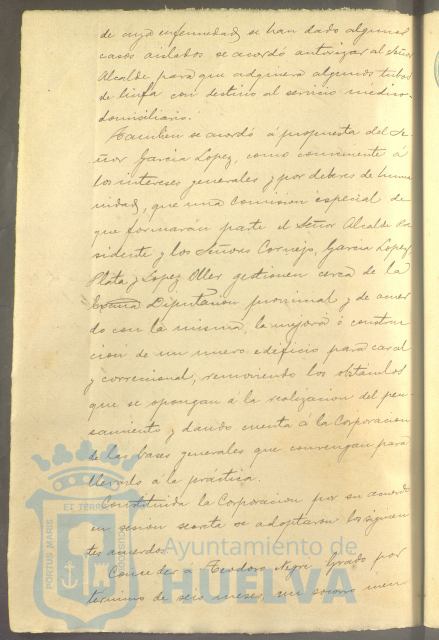 de cuya enfermedad, se han dado algunos
casos aislados se acordó autorizar al Señor
Alcalde para que adquiera algunos tubos
de linfa con destino al servicio médico-
domiciliario.
Tambien se acordó á propuesta del Se-
ñor Garcia Lopez, como conveniente á
los intereses generales y por deberes de huma
nidad, que una comision especial de
que formarán parte el Señor Alcalde Pre
sidente y los Señores Cornejo, Garcia Lopez,
Plata y Lopez Oller gestionen cerca de la
Diputacion provincial y de acuer
do con la misma, la mejora ó construc
cion de un nuevo edificio para carcel
y correccional, removiendo los obstáculos
que se opongan á la realizacion del pen
samiento y dando cuenta á la Corporacion
de las bases generales que convengan para
llevarlo á la práctica.
Constituida la Corporacion por su acuerdo
en sesion secreta se adoptaron los siguien
tes acuerdos.
Conceder á Teodoro Negre Grado por
término de seis meses, un socorro men
PORTUS MARIS ET TERRAE CUSTODIA
Ayuntamiento de
HUELVA